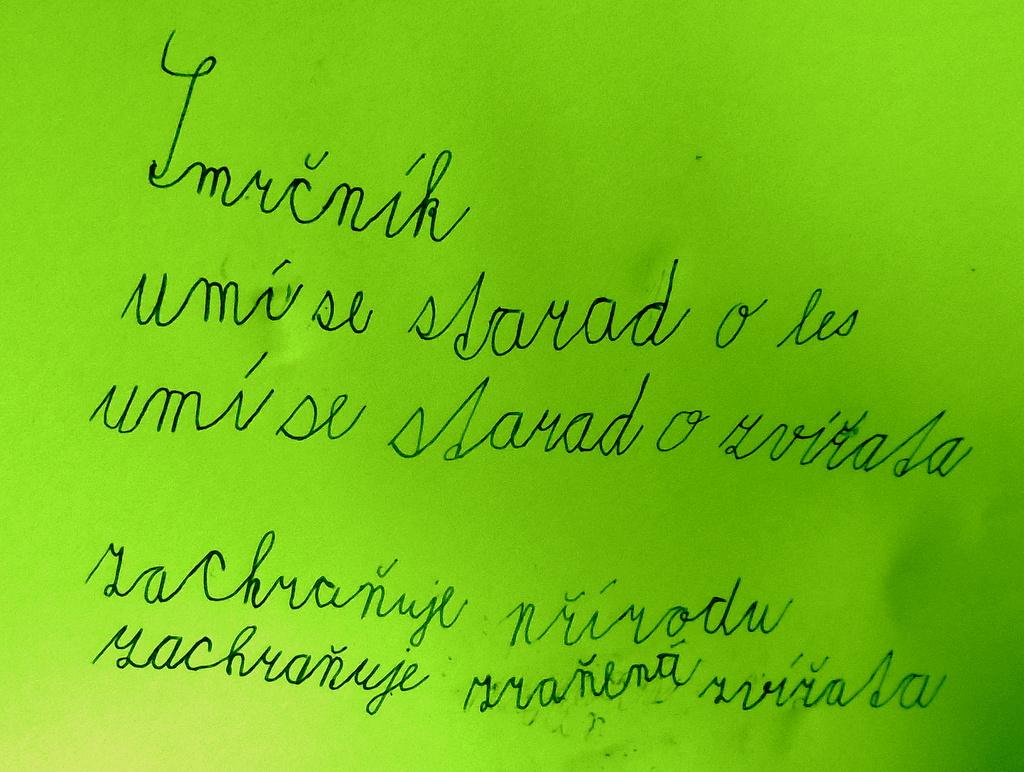 Smrčník
umí se starad o les
umí se starad o zvířata
zachraňuje přírodu
zachraňuje zraňená zvířata